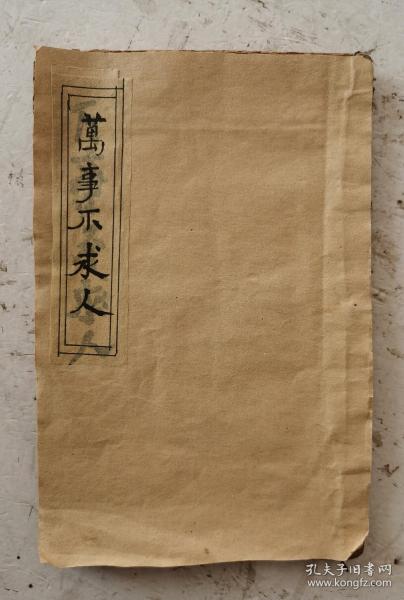 萬事不求人
孔夫子旧书网
www.kongfz.com